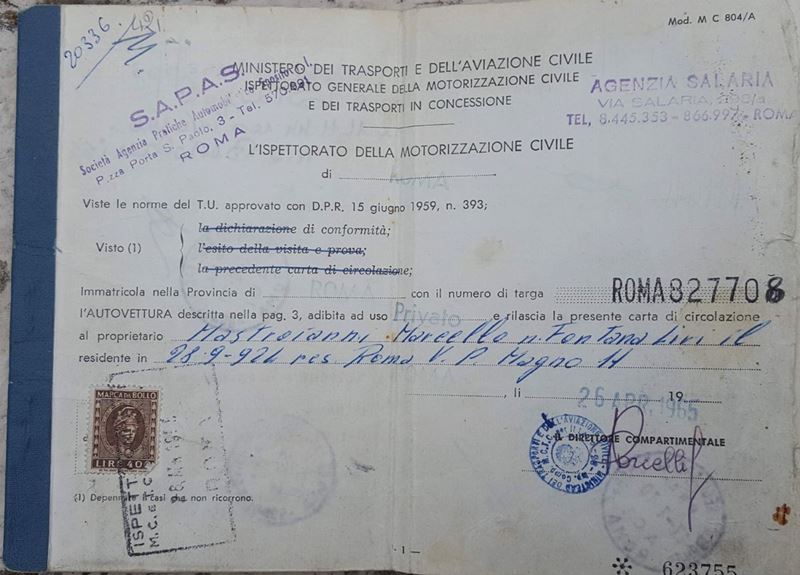 Mod. M C 804/A
20336
S.A.P.A.S.
Società Agenzia Pratiche Automobil
P.zza Porta S. Paolo, 3 - Tel. 570.
ROMA
MINISTERO DEI TRASPORTI E DELL'AVIAZIONE CIVILE
ISPETTORATO GENERALE DELLA MOTORIZZAZIONE CIVILE
E DEI TRASPORTI IN CONCESSIONE
AGENZIA SALARIA
VIA SALARIA,
TEL, 8.445.353 - 866.997 - ROMA
L'ISPETTORATO DELLA MOTORIZZAZIONE CIVILE
di ROMA
Viste le norme del T.U. approvato con D.P.R. 15 giugno 1959, n. 393;
la dichiarazione di conformità;
Visto (1) l'esito della visita e prova;
la precedente carta di circolazione;
Immatricola nella Provincia di ROMA con il numero di targa ROMA827708
l'AUTOVETTURA descritta nella pag. 3, adibita ad uso Privato e rilascia la presente carta di circolazione
al proprietario Mastroianni Marcello n. Fontana Liri il
residente in 28-9-924 res. Roma V. P. Magno 14
, li 26 APR. 1965 19
MARCA DA BOLLO
LIRE 40
IL DIRETTORE COMPARTIMENTALE
Porcelli
ISPETT
M.C. e
ROMA
(1) Depennare i casi che non ricorrono.
- 1 -
623755